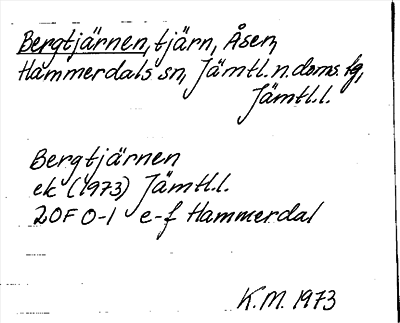 Bergtjärnen, tjärn, Åsen,
Hammerdals sn, Jämtl. n. doms. tg,
Jämtl.l.
Bergtjärnen
ek (1973) Jämtl.l.
20F 0-1 e-f Hammerdal
K.M. 1973